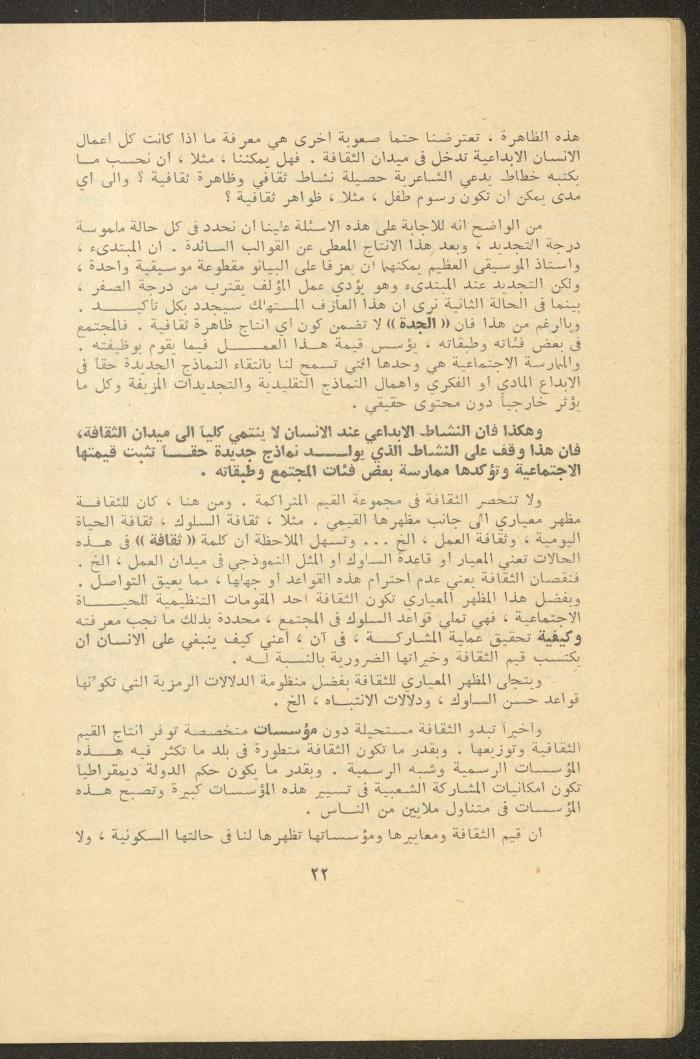 هذه الظاهرة ، تعترضنا حتماً صعوبة اخرى هي معرفة ما اذا كانت كل اعمال
الانسان الابداعية تدخل في ميدان الثقافة . فهل يمكننا ، مثلا ، أن نحسب مـا
يكتبه خطاط يدعي الشاعرية حصيلة نشاط ثقافي وظاهرة ثقافية ؟ والى اي
مدى يمكن ان تكون رسوم طفل ، مثلا ، ظواهر ثقافية ؟
من الواضح انه للاجابة على هذه الاسئلة علينا ان نحدد في كل حالة ملموسة
درجة التجديد ، وبعد هذا الانتاج المعطى عن القوالب السائدة . ان المبتدىء ،
واستاذ الموسيقى العظيم يمكنهما ان يعزفا على البيانو مقطوعة موسيقية واحدة ،
ولكن التجديد عند المبتدىء وهو يؤدي عمل المؤلف يقترب من درجة الصفر ،
بينما في الحالة الثانية نرى ان هذا العازف المستهلك سيجدد بكل تأكيـــد .
وبالرغم من هذا فان (( الجدة )) لا تضمن كون أي انتاج ظاهرة ثقافية . فالمجتمع
في بعض فئاته وطبقاته ، يؤسس قيمة هـذا العمـــل فيما يقوم بوظيفته .
والممارسة الاجتماعية هي وحدها التي تسمح لنا بانتقاء النماذج الجديدة حقاً في
الابداع المادي او الفكري واهمال النماذج التقليدية والتجديدات المزيفة وكل ما
يؤثر خارجياً دون محتوى حقيقي .
وهكذا فان النشاط الابداعي عند الانسان لا ينتمي كلياً الى ميدان الثقافة،
فان هذا وقف على النشاط الذي يولـــد نماذج جديدة حقـــاً تثبت قيمتها
الاجتماعية وتؤكدها ممارسة بعض فئات المجتمع وطبقاته .
ولا تنحصر الثقافة في مجموعة القيم المتراكمة . ومن هنا ، كان للثقافـــة
مظهر معياري الى جانب مظهرها القيمي . مثلا ، ثقافة السلوك ، ثقافة الحياة
اليومية ، وثقافة العمل ، الخ ... وتسهل الملاحظة أن كلمة (( ثقافة )) في هــذه
الحالات تعني المعيار أو قاعدة السلوك او المثل النموذجي في ميدان العمل ، الخ .
فنقصان الثقافة يعني عدم احترام هذه القواعد او جهلها ، مما يعيق التواصل .
وبفضل هذا المظهر المعياري تكون الثقافة احد المقومات التنظيمية للحيـــاة
الاجتماعية ، فهي تملي قواعد السلوك في المجتمع ، محددة بذلك ما تجب معرفته
وكيفية تحقيق عملية المشاركـــة ، في آن ، أعني كيف ينبغي على الانسان ان
يكتسب قيم الثقافة وخبراتها الضرورية بالنسبة لــه .
ويتجلى المظهر المعياري للثقافة بفضل منظومة الدلالات الرمزية التي تكوّنها
قواعد حسن السلوك ، ودلالات الانتبـاه ، الخ .
واخيراً تبدو الثقافة مستحيلة دون مؤسسات متخصصة توفر انتاج القيم
الثقافية وتوزيعها . وبقدر ما تكون الثقافة متطورة في بلد ما تكثر فيه هـــذه
المؤسسات الرسمية وشبه الرسمية . وبقدر ما يكون حكم الدولة ديمقراطياً
تكون امكانيات المشاركة الشعبية في تسيير هذه المؤسسات كبيرة وتصبح هــذه
المؤسسات في متناول ملايين من النـاس .
ان قيم الثقافة ومعاييرها ومؤسساتها تظهرها لنا في حالتها السكونية ، ولا
٢٢